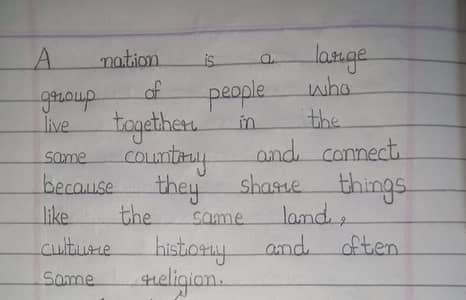 A nation is a large
group of people who
live together in the
same country and connect
because they share things
like the same land,
culture history and often
same religion.